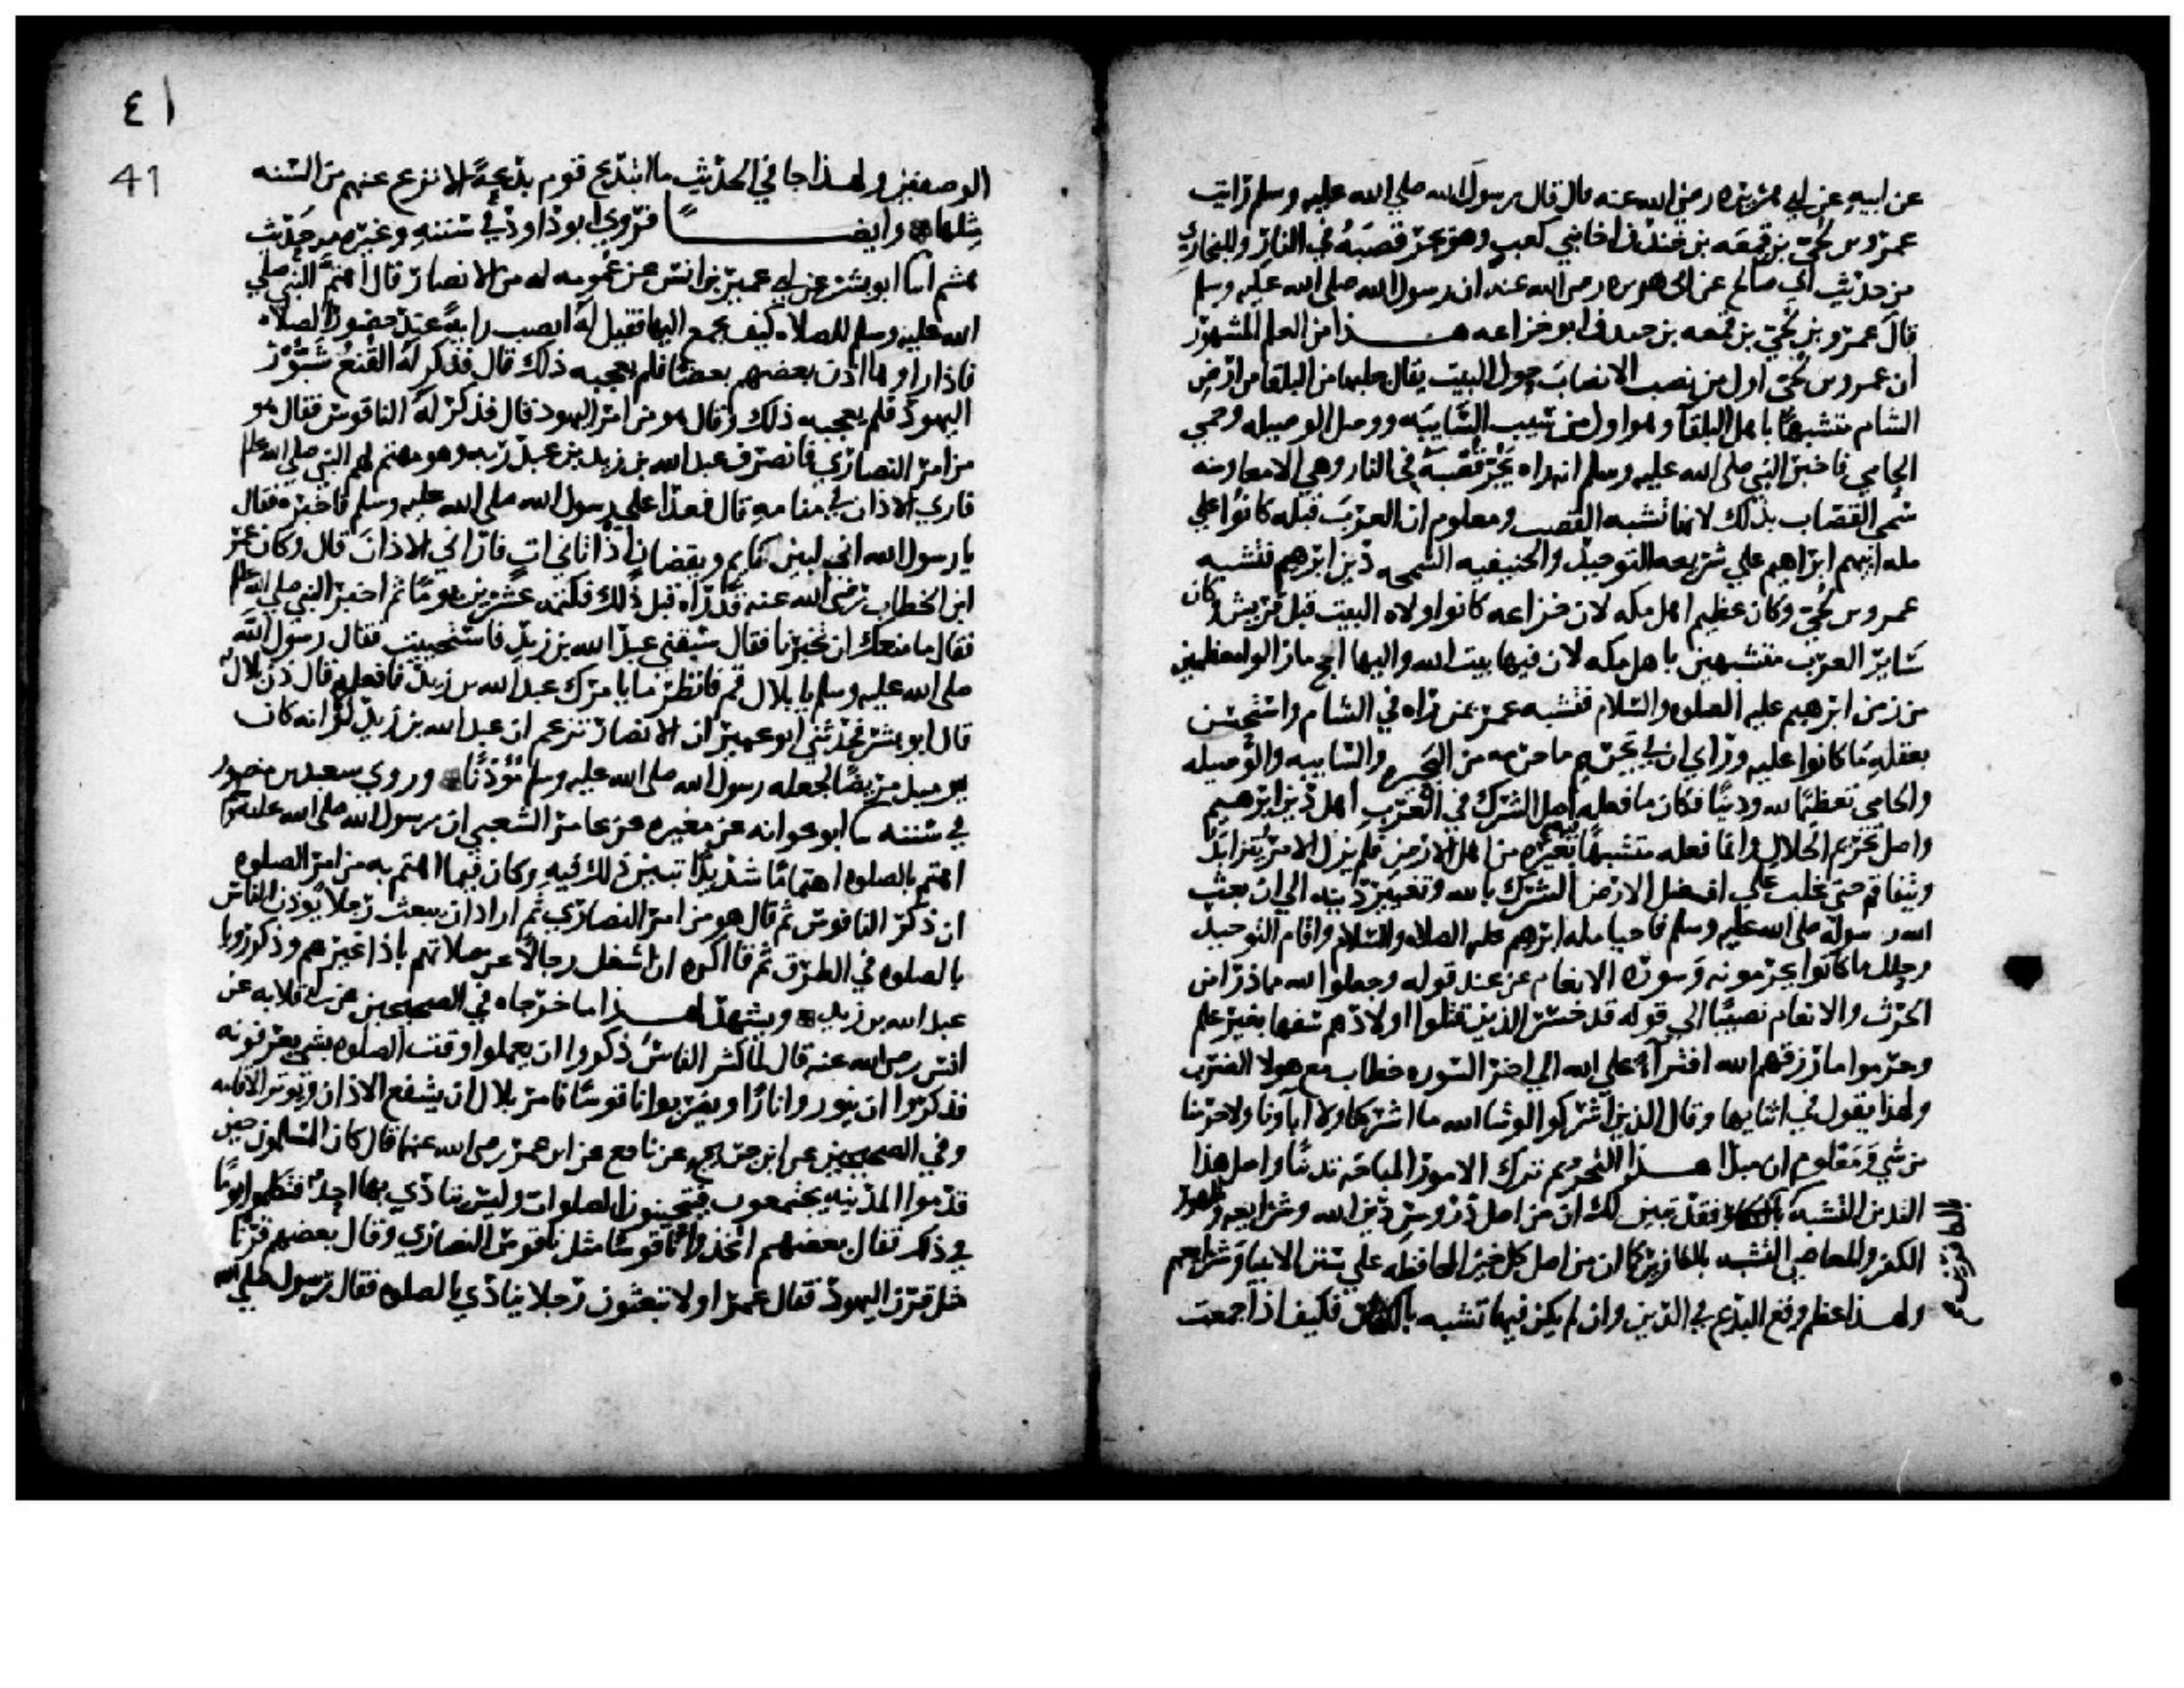 عن ابيه عن ابي هريره رضي الله عنه قال قال رسول الله صلي الله عليه وسلم رايت
عمرو بن لحي بن قمعه بن خندف اخا بني كعب وهو يجر قصبه في النار وللبخاري
من حديث ابي صالح عن ابي هريره رضي الله عنه ان رسول الله صلى الله عليه وسلم
قال عمرو بن لحي بن قمعه بن خندف ابو خزاعه هذا من العلم المشهور
ان عمرو بن لحي اول من نصب الانصاب حول البيت يقال جلبها من البلقا من ارض
الشام متشبها باهل البلقا وهو اول من سيب السايبه ووصل الوصيله وحمي
الحامي فاخبر النبي صلى الله عليه وسلم انه راه يجر قصبه في النار وهي الامعا ومنه
سمي القصاب بذلك لانها تشبه القصب ومعلوم ان العرب قبله كانوا علي
مله ابيهم ابراهيم علي شريعه التوحيد والحنيفيه السمحه دين ابرهيم فتشبه
عمرو بن لحي وكان عظيم اهل مكه لان خزاعه كانوا ولاه البيت قبل قريش وكان
سائر العرب متشبهين باهل مكه لان فيها بيت الله واليها الحج ما زالوا معظمين
من زمن ابرهيم عليه الصلوه والسلام فتشبه عمرو بمن راه في الشام واستحسن
بعقله ما كانوا عليه وراي ان في تحريم ما حرمه من البحيره والسايبه والوصيله
والحامي تعظيما لله ودينا فكان ما فعله اصل الشرك في العرب اهل دين ابرهيم
واصل تحريم الحلال وانما فعله متشبها فيه بغيره من اهل الارض فلم يزل الامر يتزايد
ويتفاقم حتى غلب علي افضل الارض الشرك بالله وتغيير دينه الي ان بعث
الله رسوله صلى الله عليه وسلم فاحيا مله ابرهيم عليه الصلاه والسلام واقام التوحيد
وحلل ما كانوا يحرمونه وسوره الانعام من عند قوله وجعلوا لله مما ذرا من
الحرث والانعام نصيبا الي قوله قد خسر الذين قتلوا اولادهم سفها بغير علم
وحرموا ما رزقهم الله افتراء علي الله الي اخر السوره خطاب مع هولا الضرب
ولهذا يقول في اثنايها وقال الذين اشركوا لو شا الله ما اشركنا ولا اباونا ولا حرمنا
من شي ومعلوم ان مبدا هذا التحريم ترك الامور المباحه تدينا واصل هذا
التدين التشبه بالكفار فقد تبين لك ان من اصل دروس دين الله وشرايعه وظهور
الكفر والمعاصي التشبه بالكافرين كما ان من اصل كل خير المحافظه علي سنن الانبيا وشرايعهم
ولهذا عظم وقع البدع في الدين وان لم يكن فيها تشبه بالكفار فكيف اذا جمعت
٤١
41
الوصفين ولهذا جا في الحديث ما ابتدع قوم بدعة الا نزع عنهم من السنه
مثلها وايضا فروي ابو داود في سننه وغيره من حديث
هشيم انا ابو بشر عن ابي عمير بن انس عن عمومه له من الانصار قال اهتم النبي صلي
الله عليه وسلم للصلاه كيف يجمع اليها فقيل له انصب رايةً عند حضور الصلاه
فاذا راوها اذن بعضهم بعضا فلم يعجبه ذلك قال فذكر له القنع شبور
اليهود فلم يعجبه ذلك وقال هو من امر اليهود قال فذكر له الناقوس فقال هو
من امر النصاري فانصرف عبد الله بن زيد بن عبد ربه وهو مهتم لهم النبي صلي الله عليه
فاري الاذان في منامه قال فغدا علي رسول الله صلى الله عليه وسلم فاخبره فقال
يا رسول الله اني لبين نايم ويقضان اذ اتاني ات فاراني الاذان قال وكان عمر
ابن الخطاب رضي الله عنه قد راه قبل ذلك فكتمه عشرين يوما ثم اخبر النبي صلي الله عليه
فقال ما منعك ان تخبرنا فقال سبقني عبد الله بن زيد فاستحييت فقال رسول الله
صلى الله عليه وسلم يا بلال قم فانظر ما يامرك عبد الله بن زيد فافعله قال فاذن بلال
قال ابو بشر فحدثني ابو عمير ان الانصار تزعم ان عبد الله بن زيد لولا انه كان
يوميذ مريضا لجعله رسول الله صلى الله عليه وسلم موذنا وروي سعيد بن منصور
في سننه ثنا ابو عوانه عن مغيره عن عامر الشعبي ان رسول الله صلى الله عليه وسلم
اهتم بالصلوه اهتماما شديدا تبين ذلك فيه وكان فيما اهتم به من امر الصلوه
ان ذكر الناقوس ثم قال هو من امر النصاري ثم اراد ان يبعث رجلا يوذن الناس
بالصلوه في الطرق ثم قال اكره ان اشغل رجالا عن صلاتهم باذان غيرهم وذكر رويا
عبد الله بن زيد ويشهد لهذا ما خرجاه في الصحيحين عن ابي قلابه عن
انس رضي الله عنه قال لما كثر الناس ذكروا ان يعلموا وقت الصلوه بشي يعرفونه
فذكروا ان ينوروا نارا او يضربوا ناقوسا فامر بلال ان يشفع الاذان ويوتر الاقامه
وفي الصحيحين عن ابن جريج عن نافع عن ابن عمر رضي الله عنهما قال كان المسلمون حين
قدموا المدينه يجتمعون فيتحينون الصلوات وليس ينادي بها احد فتكلموا يوما
في ذلك فقال بعضهم اتخذوا ناقوسا مثل ناقوس النصاري وقال بعضهم قرنا
مثل قرن اليهود فقال عمر اولا تبعثون رجلا ينادي بالصلوه فقال رسول الله صلي الله